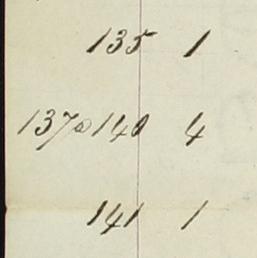 135 1
137 a 140 4
141 1